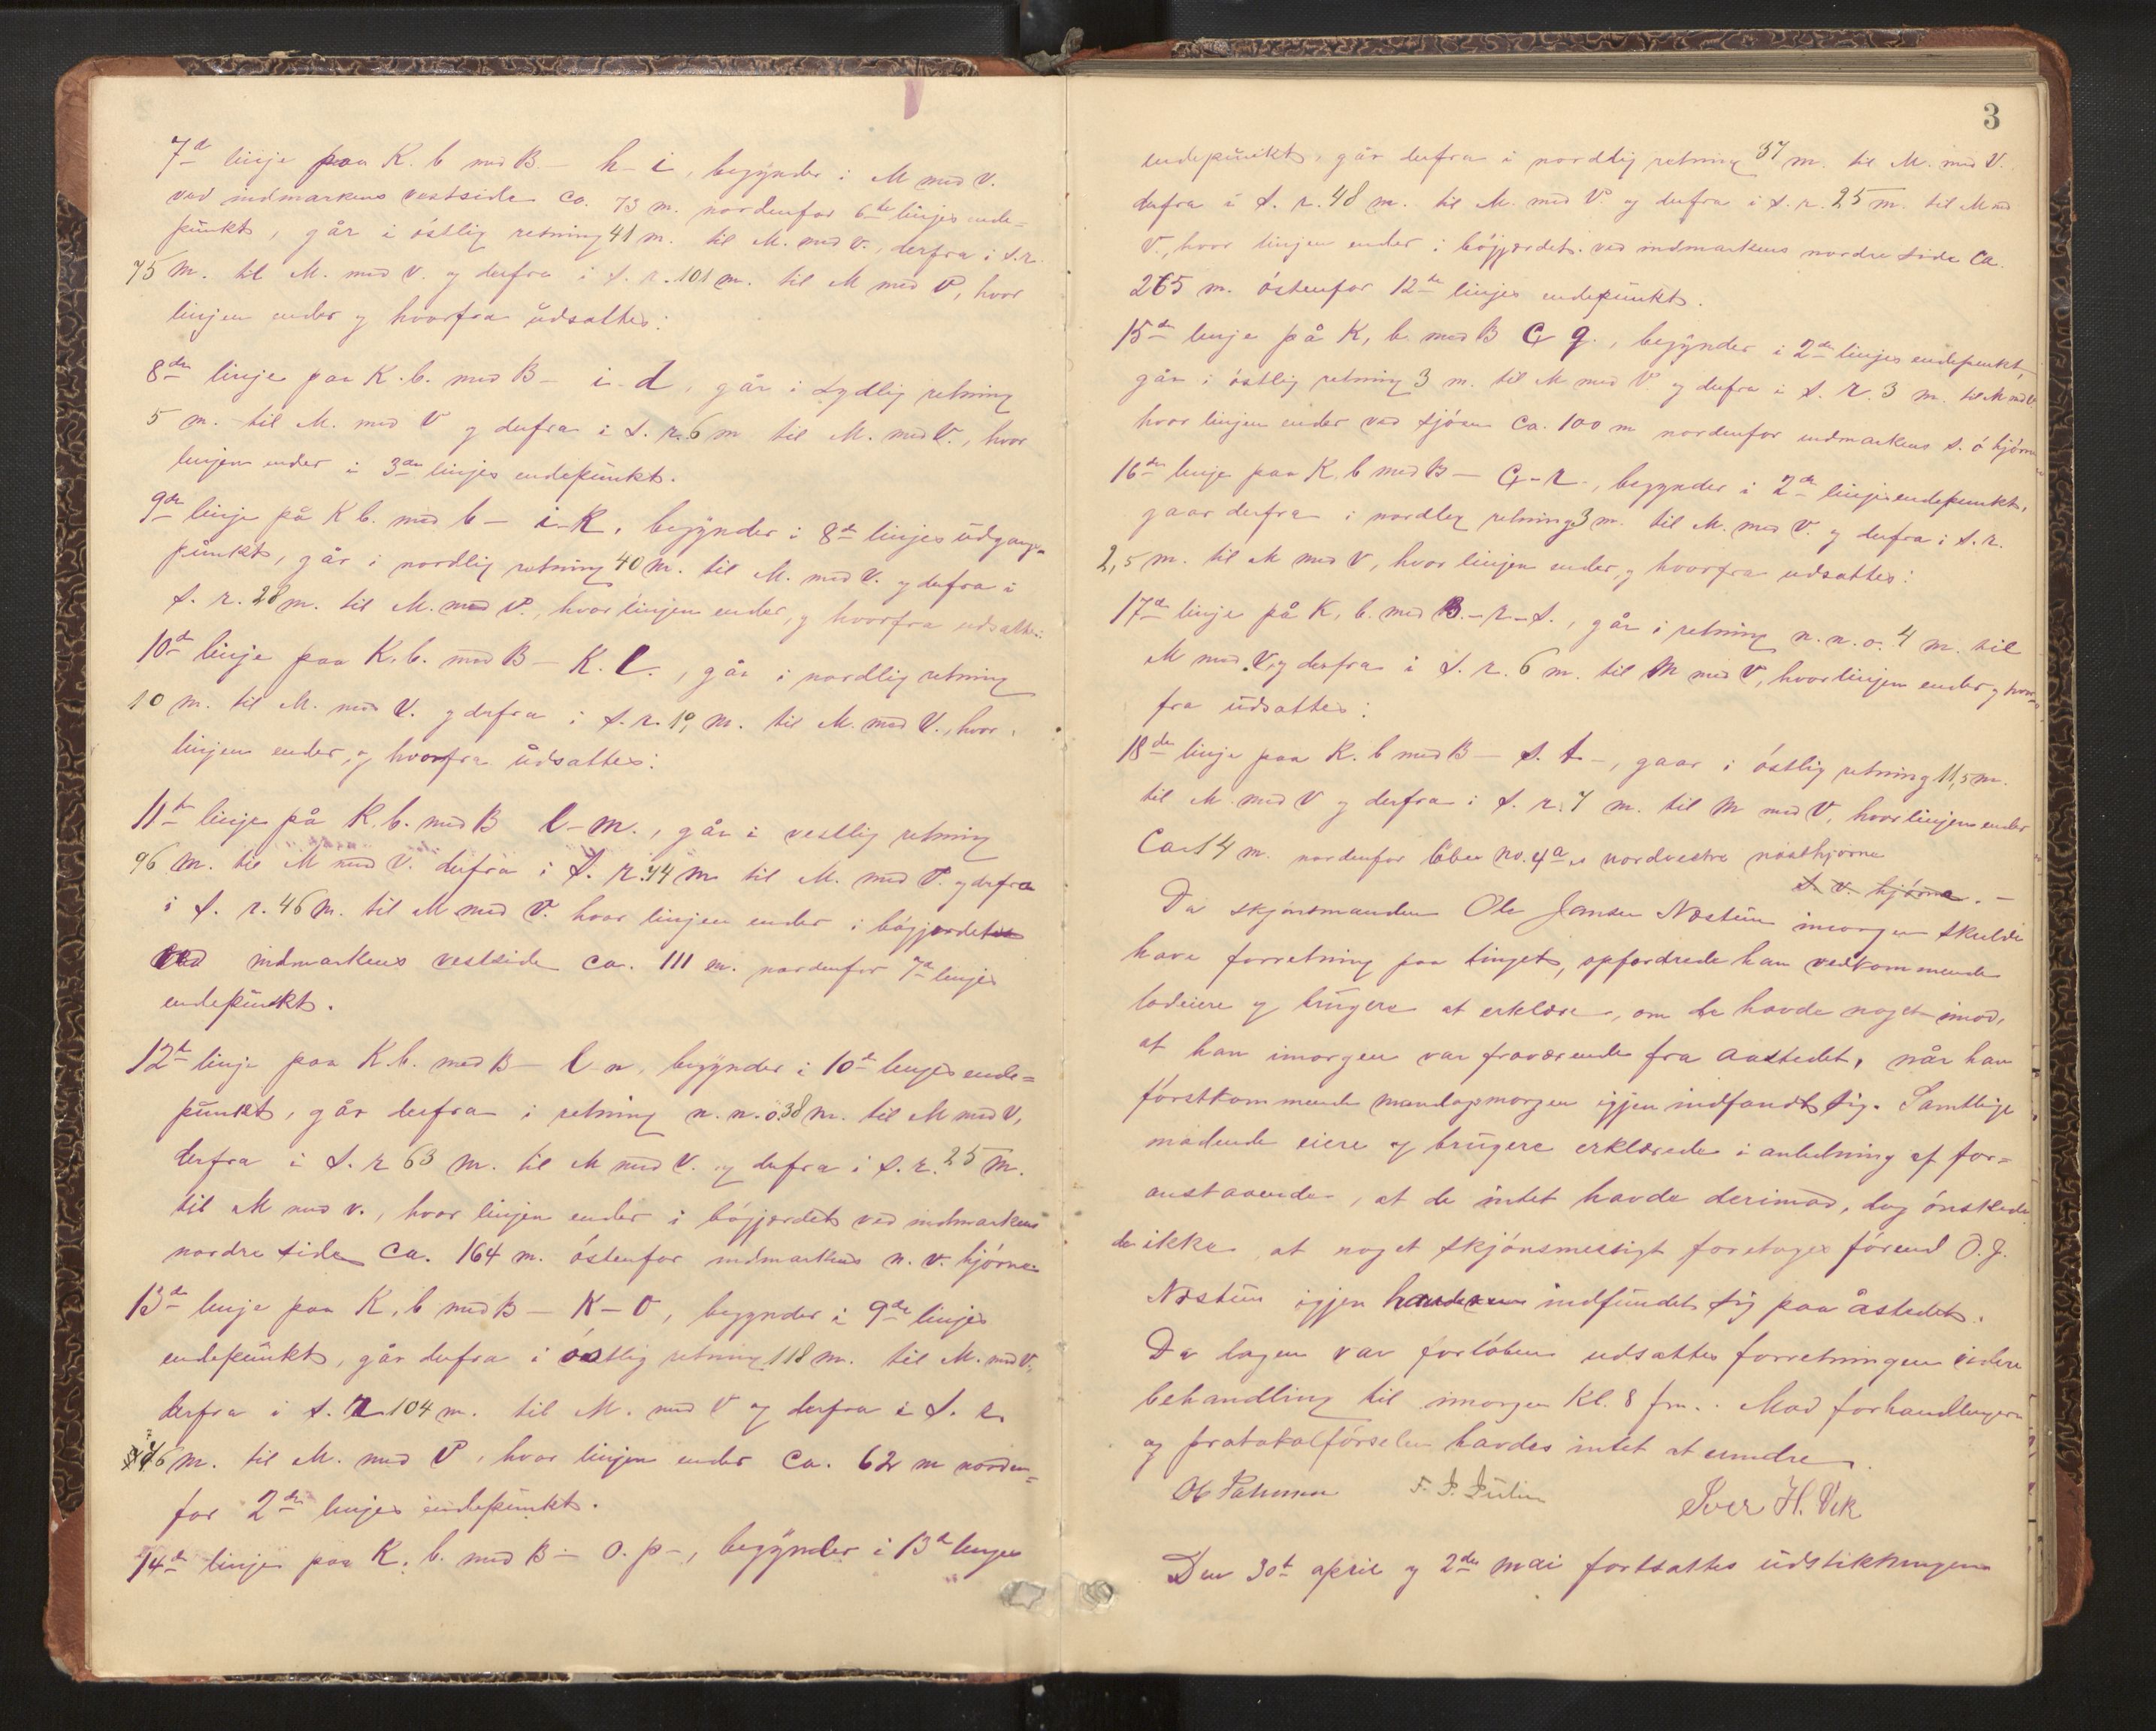 7de linje paa K. b med B – h – i, begynder i M med V.
ved indmarkens vestside ca. 73 m. nordenfor 6te linjes ende-
punkt, går i östlig retning 41 m. til M. med V., derfra i s. r.
75 m. til M. med V. og derfra i s. r. 101 m. til M med V, hvor
linjen ender og hvorfra udsattes:
8de linje paa K. b. med B – i – d, går i sydlig retning
5 m. til M. med V og derfra i s. r. 6 m til M. med V., hvor
linjen ender i 3die linjes endepunkt.
9de linje på K b. med b – i – K, begynder i 8de linjes udgangs-
punkt, går i nordlig retning 40 m. til M. med V. og derfra i
s. r. 28 m. til M. med V., hvor linjen ender, og hvorfra udsattes:
10de linje paa K. b. med B – K. l., går i nordlig retning
10 m. til M. med V. og derfra i s. r. 19, m. til M. med V., hvor
linjen ender, og hvorfra udsattes:
11te linje på K. b. med B l – m., går i vestlig retning
96 m. til M med V. derfra i s. r. 74 m til M. med V. og derfra
i s. r. 46 m. til M med V. hvor linjen ender i bögjerdet
ved indmarkens vestside ca. 111 m. nordenfor 7de linjes
endepunkt.
12te linje paa K. b. med B – l – n, begynder i 10de linjes ende=
punkt, går derfra i retning n. n. ö. 38 m. til M med V,
derfra i s. r 63 m. til M med V. og derfra i s. r. 25 m.
til M med V., hvor linjen ender i bögjerdet ved indmarkens
nordre side ca. 164 m. östenfor indmarkens n. v. hjörne
13de linje paa K. b med B – K – O, begynder i 9de linjes
endepunkt, går derfra i östlig retning 118 m. til M. med V.
derfra i s. r 104 m. til M. med V og derfra i s. r.
76 m. til M. med V, hvor linjen ender ca. 62 m norden=
for 2den linjes endepunkt.
14de linje paa K. b. med B – o. p –, begynder i 13de linjes
3
endepunkt, går derfra i nordlig retning 37 m. til M. med V.
derfra i s. r. 48 m. til M. med V og derfra i s. r. 25 m. til M med
V., hvor linjen ender i bögjerdet. ved indmarkens nordre side ca.
265 m. östenfor 12te linjes endepunkt.
15de linje på K, b. med B Q q., begynder i 2den linjes endepunkt,
går i östlig retning 3 m. til M med V og derfra i s. r. 3 m. til M med V.
hvor linjen ender ved sjöen ca. 100 m nordenfor indmarkens s. ö hjörne
16de linje paa K. b med B – Q – r –, begynder i 2den linjes endepunkt,
gaar derfra i nordlig retning 3 m. til M. med V. og derfra i s. r.
2,5 m. til M med V, hvor linjen ender, og hvorfra udsattes:
17de linje på K, b. med B. – r – s., går i retning n. n. o. 4 m. til
M med V, og derfra i s. r. 6 m. til M med V, hvor linjen ender og hvor-
fra udsattes:
18de linje paa K. b med B – s. t –, gaar i östlig retning 11,5 m.
til M med V og derfra i s. r. 7 m. til M med V, hvor linjen ender
Ca. 14 m. nordenfor löbe no. 4a.s nordvestre nösthjörne
s. v. hjörne. –
Da skjönsmanden Ole Jansen Nöstun imorgen skulde
have forretning paa tinget, opfordrede han vedkommende
lodeiere og brugere at erklære, om de havde noget imod,
at han imorgen var fraværende fra aastedet, når han
förstkommende mandagsmorgen igjen indfandt sig. Samtlige
mödende eiere og brugere erklærede i anledning af for=
anstaaende, at de intet havde derimod, dog önskede
de ikke, at noget skjönsmessigt foretoges förend O. J.
Nöstun igjen indfundet sig paa åstedet.
Da dagen var forlöben udsattes forretningen videre
behandling til imorgen Kl. 8 fm. . Mod forhandlingen
og protokolförselen havdes intet at erindre.
Iver H. Vik
Den 30te april og 2den mai fortsattes udstikkningen